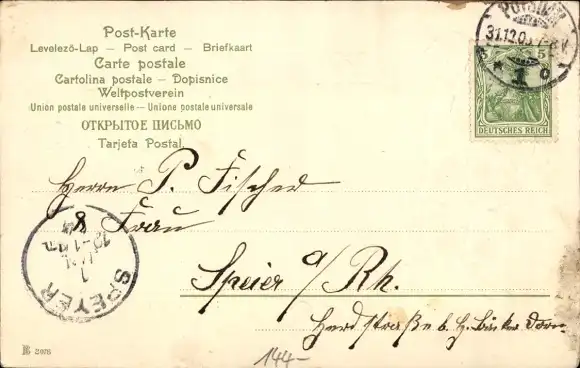 Post-Karte
Levelező-Lap — Post card — Briefkaart
Carte postale
Cartolina postale — Dopisnice
Weltpostverein
Union postale universelle — Unione postale universale
ОТКРЫТОЕ ПИСЬМО
Tarjeta Postal
31.12.0
1
c
5 5
DEUTSCHES REICH
Herrn P. Fischer
& Frau
Speier a/Rh.
Herdstraße b. H.
SPEYER
1
12-1
144-